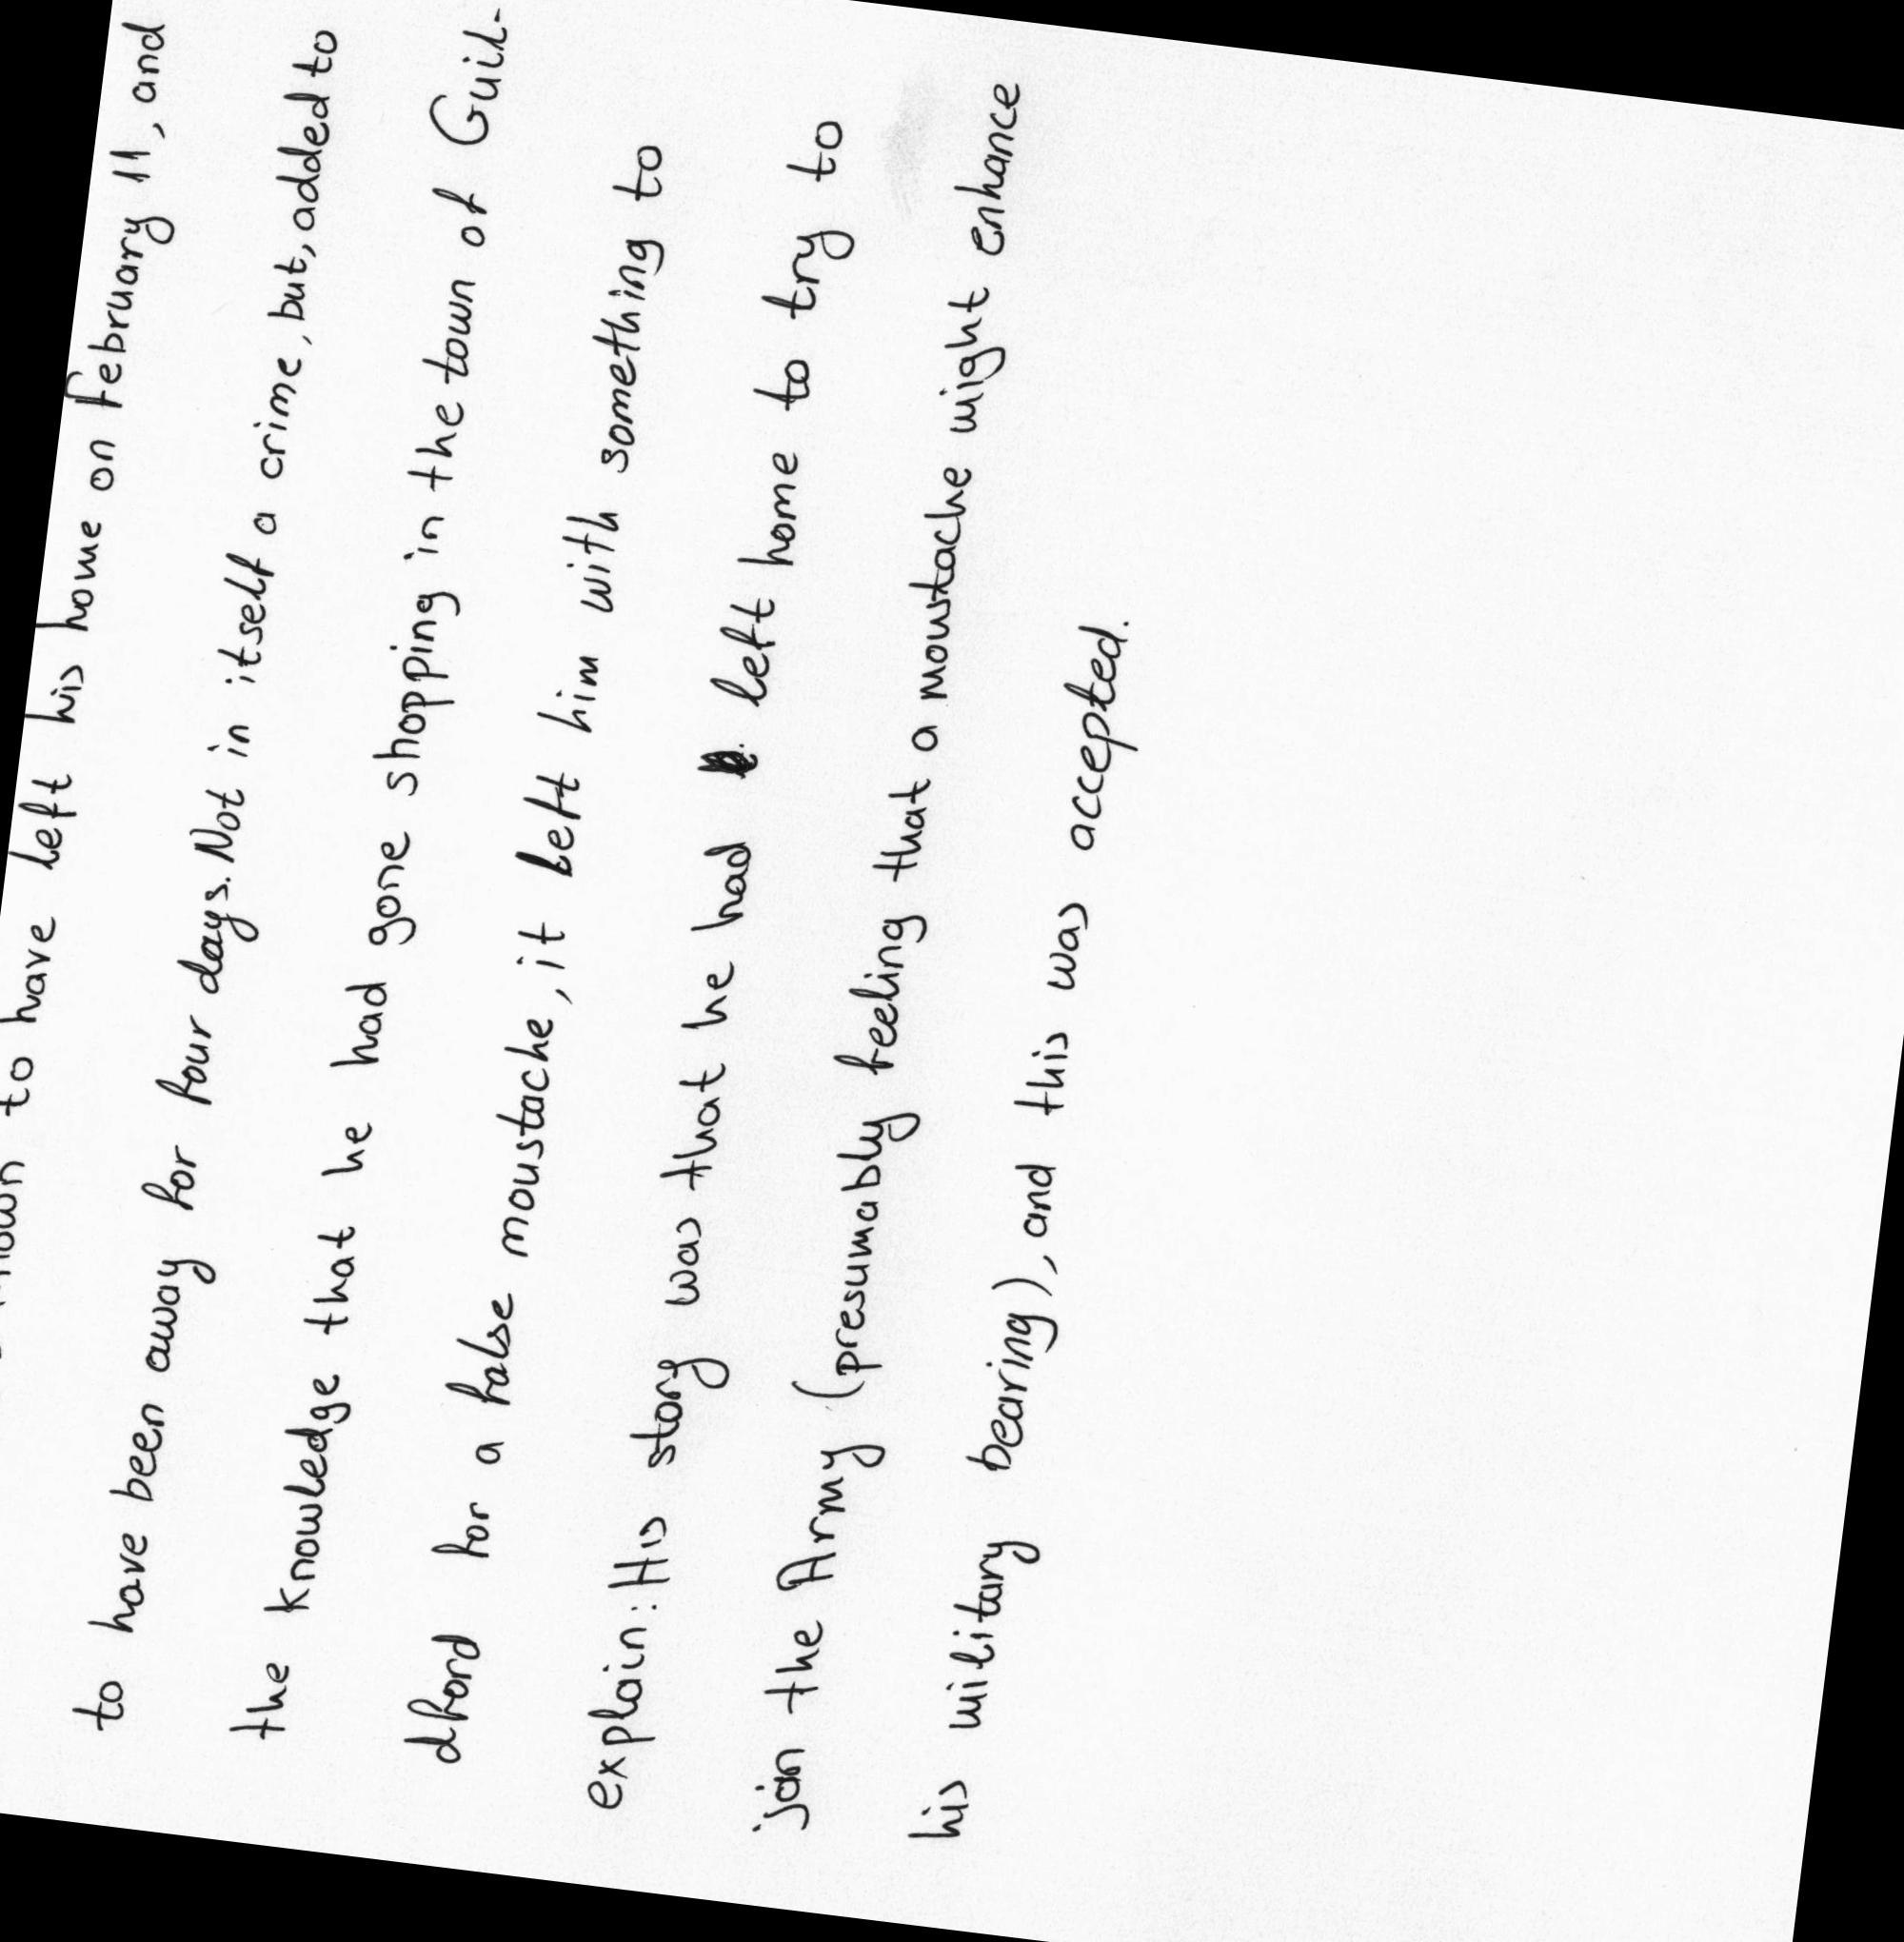 to have left his home on February 11, and
to have been away for four days. Not in itself a crime, but, added to
the knowledge that he had gone shopping in the town of Guil-
dford for a false moustache, it left him with something to
explain: His story was that he had left home to try to
join the Army (presumably feeling that a moustache might enhance
his military bearing), and this was accepted.